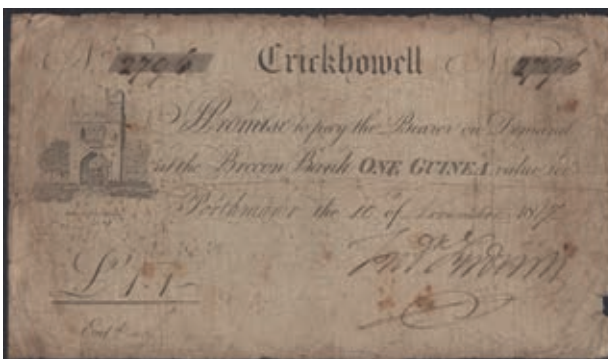 No 2796 Crickhowell No 2796
I Promise to pay the Bearer on Demand
at the Brecon Bank ONE GUINEA value rec
Porthmawr the 10 of 1817
£1.1-
Entd